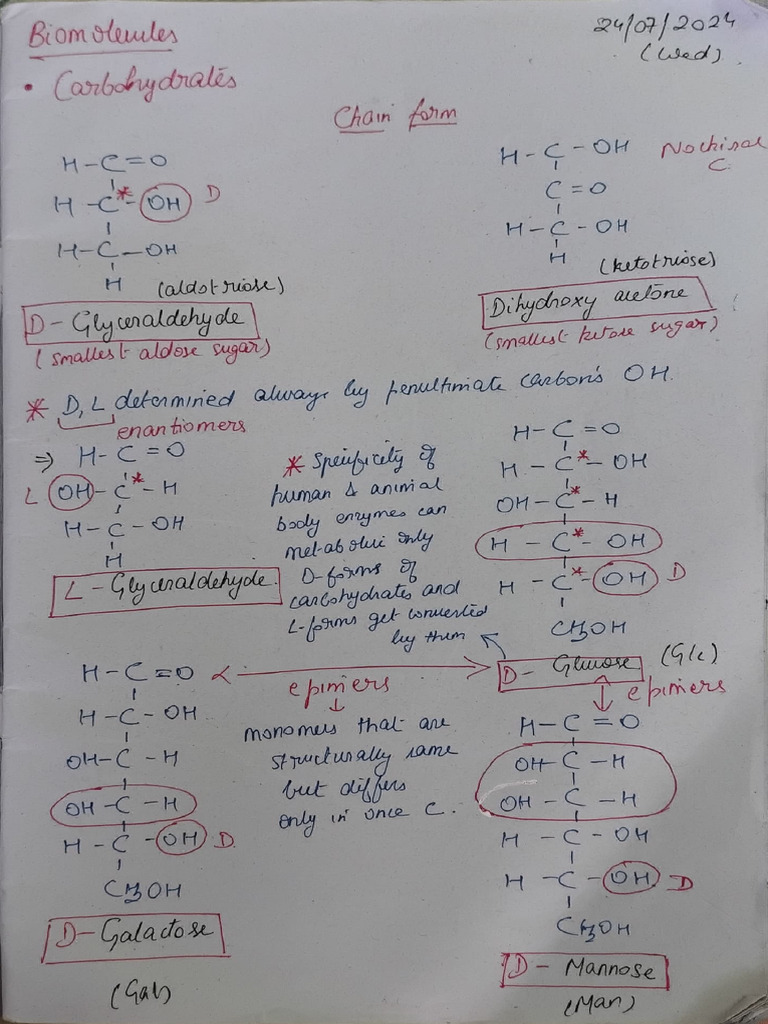 Biomolecules
24/07/2024
(Wed)
• Carbohydrates
Chain form
H-C=O
H-C*-OH D
H-C-OH
H
(aldotriose)
D-Glyceraldehyde
(smallest aldose sugar)
H-C-OH No chiral
C.
C=O
H-C-OH
H
(ketotriose)
Dihydroxy acetone
(smallest ketose sugar)
* D, L determined always by penultimate carbon's OH.
enantiomers
⇒ H-C=O
L OH-C*-H
H-C-OH
H
L-Glyceraldehyde.
* Specificity of
human & animal
body enzymes can
metabolic only
D-forms of
carbohydrates and
L-forms get converted
by them
H-C=O
H-C*-OH
OH-C*-H
H-C*-OH
H-C*-OH D
CH₂OH
D-Glucose (Glc)
epimers
H-C=O
H-C-OH
OH-C-H
OH-C-H
H-C-OH D
CH₂OH
D-Galactose
(Gal)
epimers
↓
monomers that are
structurally same
but differs
only in once C.
H-C=O
OH-C-H
OH-C-H
H-C-OH
H-C-OH D
CH₂OH
D-Mannose
(Man)